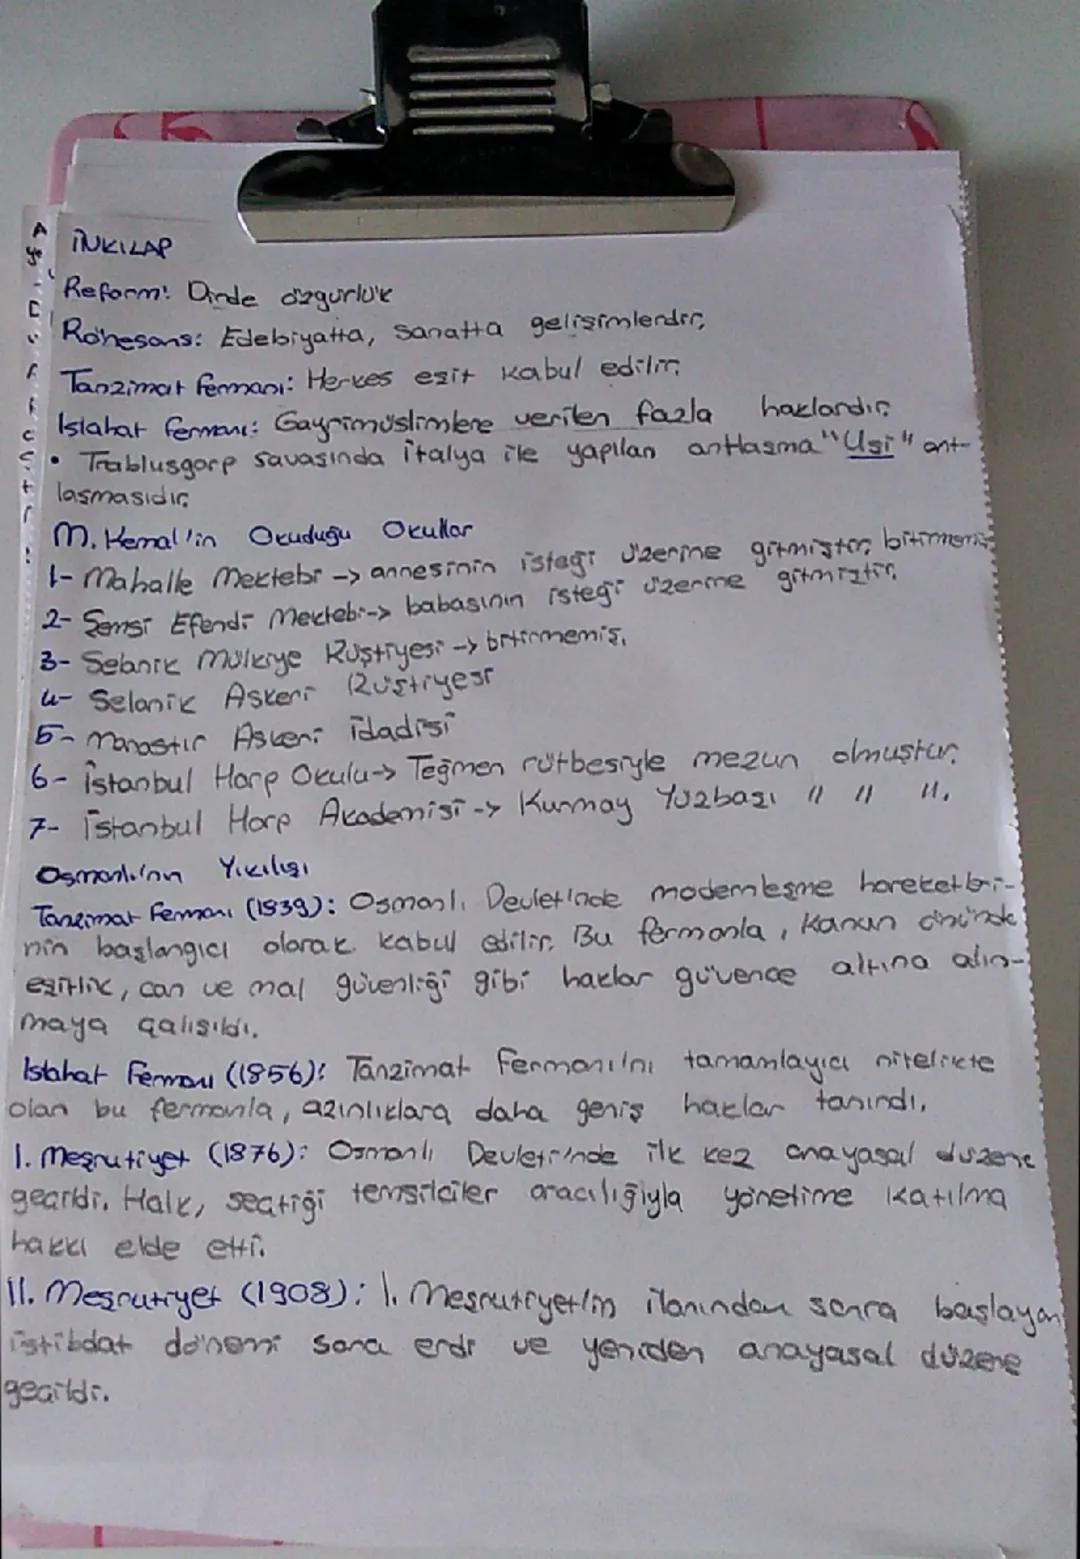 İNKILAP
Reform: Dinde özgürlük
Rönesans: Edebiyatta, sanatta gelişimlerdir.
Tanzimat fermanı: Herkes eşit kabul edilir.
Islahat fermanı: Gayrimüslimlere verilen fazla haklardır.
• Trablusgarp savaşında İtalya ile yapılan antlaşma "Uşi" ant-
laşmasıdır.
M. Kemal'in Okuduğu Okullar
1- Mahalle Mektebi -> annesinin isteği üzerine gitmiştir, bitirmemiş
2- Şemsi Efendi Mektebi-> babasının isteği üzerine gitmiştir.
3- Selanik Mülkiye Rüştiyesi -> bitirmemiş.
4- Selanik Askeri Rüştiyesi
5- Manastır Askeri İdadisi
6- İstanbul Harp Okulu-> Teğmen rütbesiyle mezun olmuştur.
7- İstanbul Harp Akademisi -> Kurmay Yüzbaşı " " ".
Osmanlı'nın Yıkılışı
Tanzimat Fermanı (1839): Osmanlı Devleti'nde modernleşme hareketleri-
nin başlangıcı olarak kabul edilir. Bu fermanla, kanun önünde
eşitlik, can ve mal güvenliği gibi haklar güvence altına alın-
maya çalışıldı.
Islahat Fermanı (1856): Tanzimat Fermanı'nı tamamlayıcı nitelikte
olan bu fermanla, azınlıklara daha geniş haklar tanındı.
I. Meşrutiyet (1876): Osmanlı Devleti'nde ilk kez anayasal düzene
geçildi. Halk, seçtiği temsilciler aracılığıyla yönetime katılma
hakkı elde etti.
II. Meşrutiyet (1908): I. Meşrutiyet'in ilanından sonra başlayan
istibdat dönemi sona erdi ve yeniden anayasal düzene
geçildi.